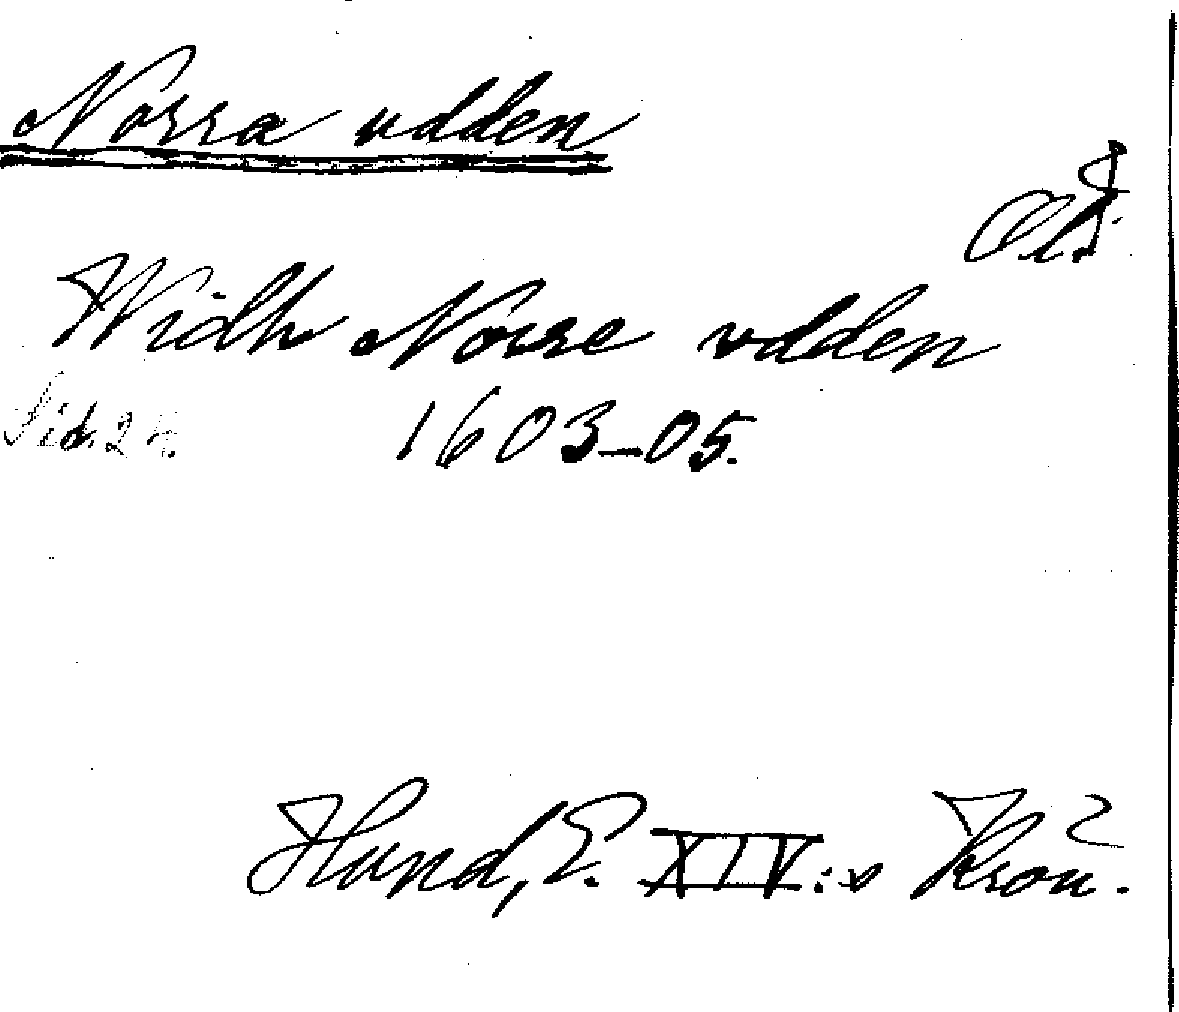 Norra udden
Öld.
Widh Norre vdden
Sid. 24. 1603-05.
Hund, E. XIV:s Krön.